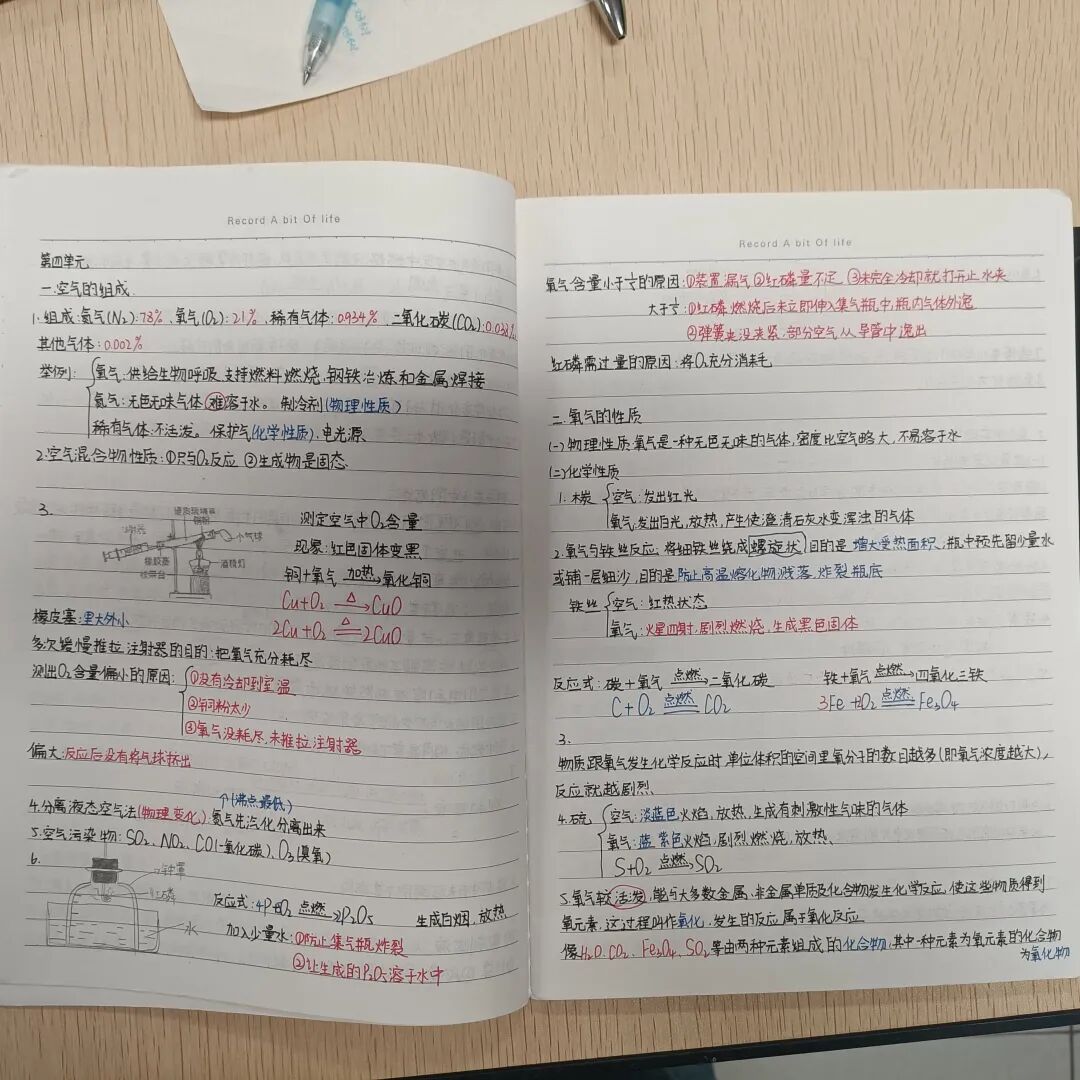 Record A bit Of life
第四单元
一.空气的组成.
1.组成:氮气(N₂):78%、氧气(O₂):21%、稀有气体:0.934%、二氧化碳(CO₂):0.038%
其他气体:0.002%
举例:
氧气:供给生物呼吸.支持燃料燃烧,钢铁冶炼和金属焊接
氮气:无色无味气体 难溶于水。 制冷剂(物理性质)
稀有气体:不活泼。保护气(化学性质).电光源
2.空气混合物性质:①只与O₂反应 ②生成物是固态.
3.
硬质玻璃管
铜粉
注射器
小气球
橡胶塞
酒精灯
铁架台
测定空气中O₂含量
现象:红色固体变黑
铜+氧气 加热→ 氧化铜
Cu+O₂ △→ CuO
2Cu+O₂ △═ 2CuO
橡皮塞:里大外小
多次缓慢推拉注射器的目的:把氧气充分耗尽
测出O₂含量偏小的原因:
①没有冷却到室温
②铜粉太少
③氧气没耗尽,未推拉注射器
偏大:反应后没有将气球挤出
↑(沸点最低)
4.分离液态空气法(物理变化).氮气先汽化分离出来
5.空气污染物:SO₂、NO₂、CO(一氧化碳)、O₃(臭氧)
6.
钟罩
红磷
水
反应式:4P+O₂ 点燃→ 2P₂O₅ 生成白烟,放热
加入少量水:①防止集气瓶炸裂
②让生成的P₂O₅溶于水中
Record A bit Of life
氧气含量小于1/5的原因:①装置漏气 ②红磷量不足 ③未完全冷却就打开止水夹
大于1/5:①红磷燃烧后未立即伸入集气瓶中,瓶内气体外逸
②弹簧夹没夹紧,部分空气从导管中逸出
红磷需过量的原因:将O₂充分消耗
二.氧气的性质
(一)物理性质:氧气是一种无色无味的气体,密度比空气略大,不易溶于水
(二)化学性质
1.木炭
空气:发出红光
氧气:发出白光,放热,产生使澄清石灰水变浑浊的气体
2.氧气与铁丝反应.将细铁丝绕成螺旋状目的是 增大受热面积,瓶中预先留少量水
或铺一层细沙,目的是防止高温熔化物溅落.炸裂瓶底
铁丝
空气:红热状态
氧气:火星四射,剧烈燃烧,生成黑色固体
反应式:碳+氧气 点燃→ 二氧化碳 铁+氧气 点燃→ 四氧化三铁
C+O₂ 点燃═ CO₂ 3Fe+2O₂ 点燃═ Fe₃O₄
3.
物质跟氧气发生化学反应时,单位体积的空间里氧分子的数目越多(即氧气浓度越大),
反应就越剧烈.
4.硫
空气:淡蓝色火焰,放热,生成有刺激性气味的气体
氧气:蓝紫色火焰,剧烈燃烧,放热、
S+O₂ 点燃→ SO₂
5.氧气较活泼,能与大多数金属、非金属单质及化合物发生化学反应,使这些物质得到
氧元素.这过程叫作氧化.发生的反应属于氧化反应
像H₂O.CO₂、Fe₃O₄、SO₂等由两种元素组成的化合物,其中一种元素为氧元素的化合物
为氧化物